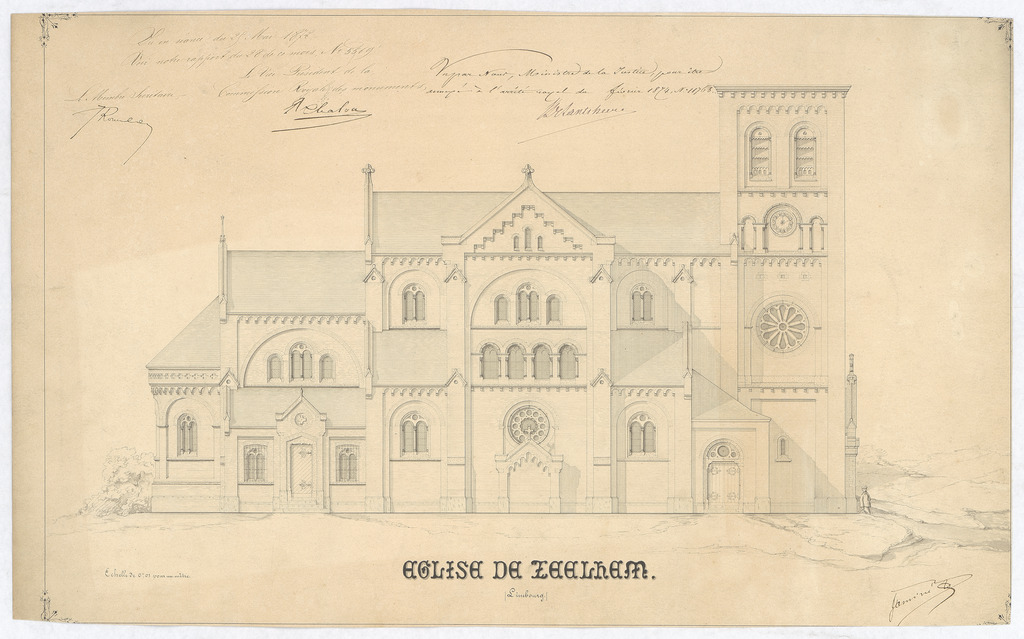 Vu notre rapport du 28 de ce mois, N° 5519
Le Vice Président de la
Commission Royale des monuments,
Le Membre Secrétaire
Vu par Nous, Ministre de la Justice, pour être
annexé à l'arrêté royal du février 1874, N° 11763
EGLISE DE ZEELHEM.
(Limbourg)
Echelle de 0,01 pour un mètre
Jaminé